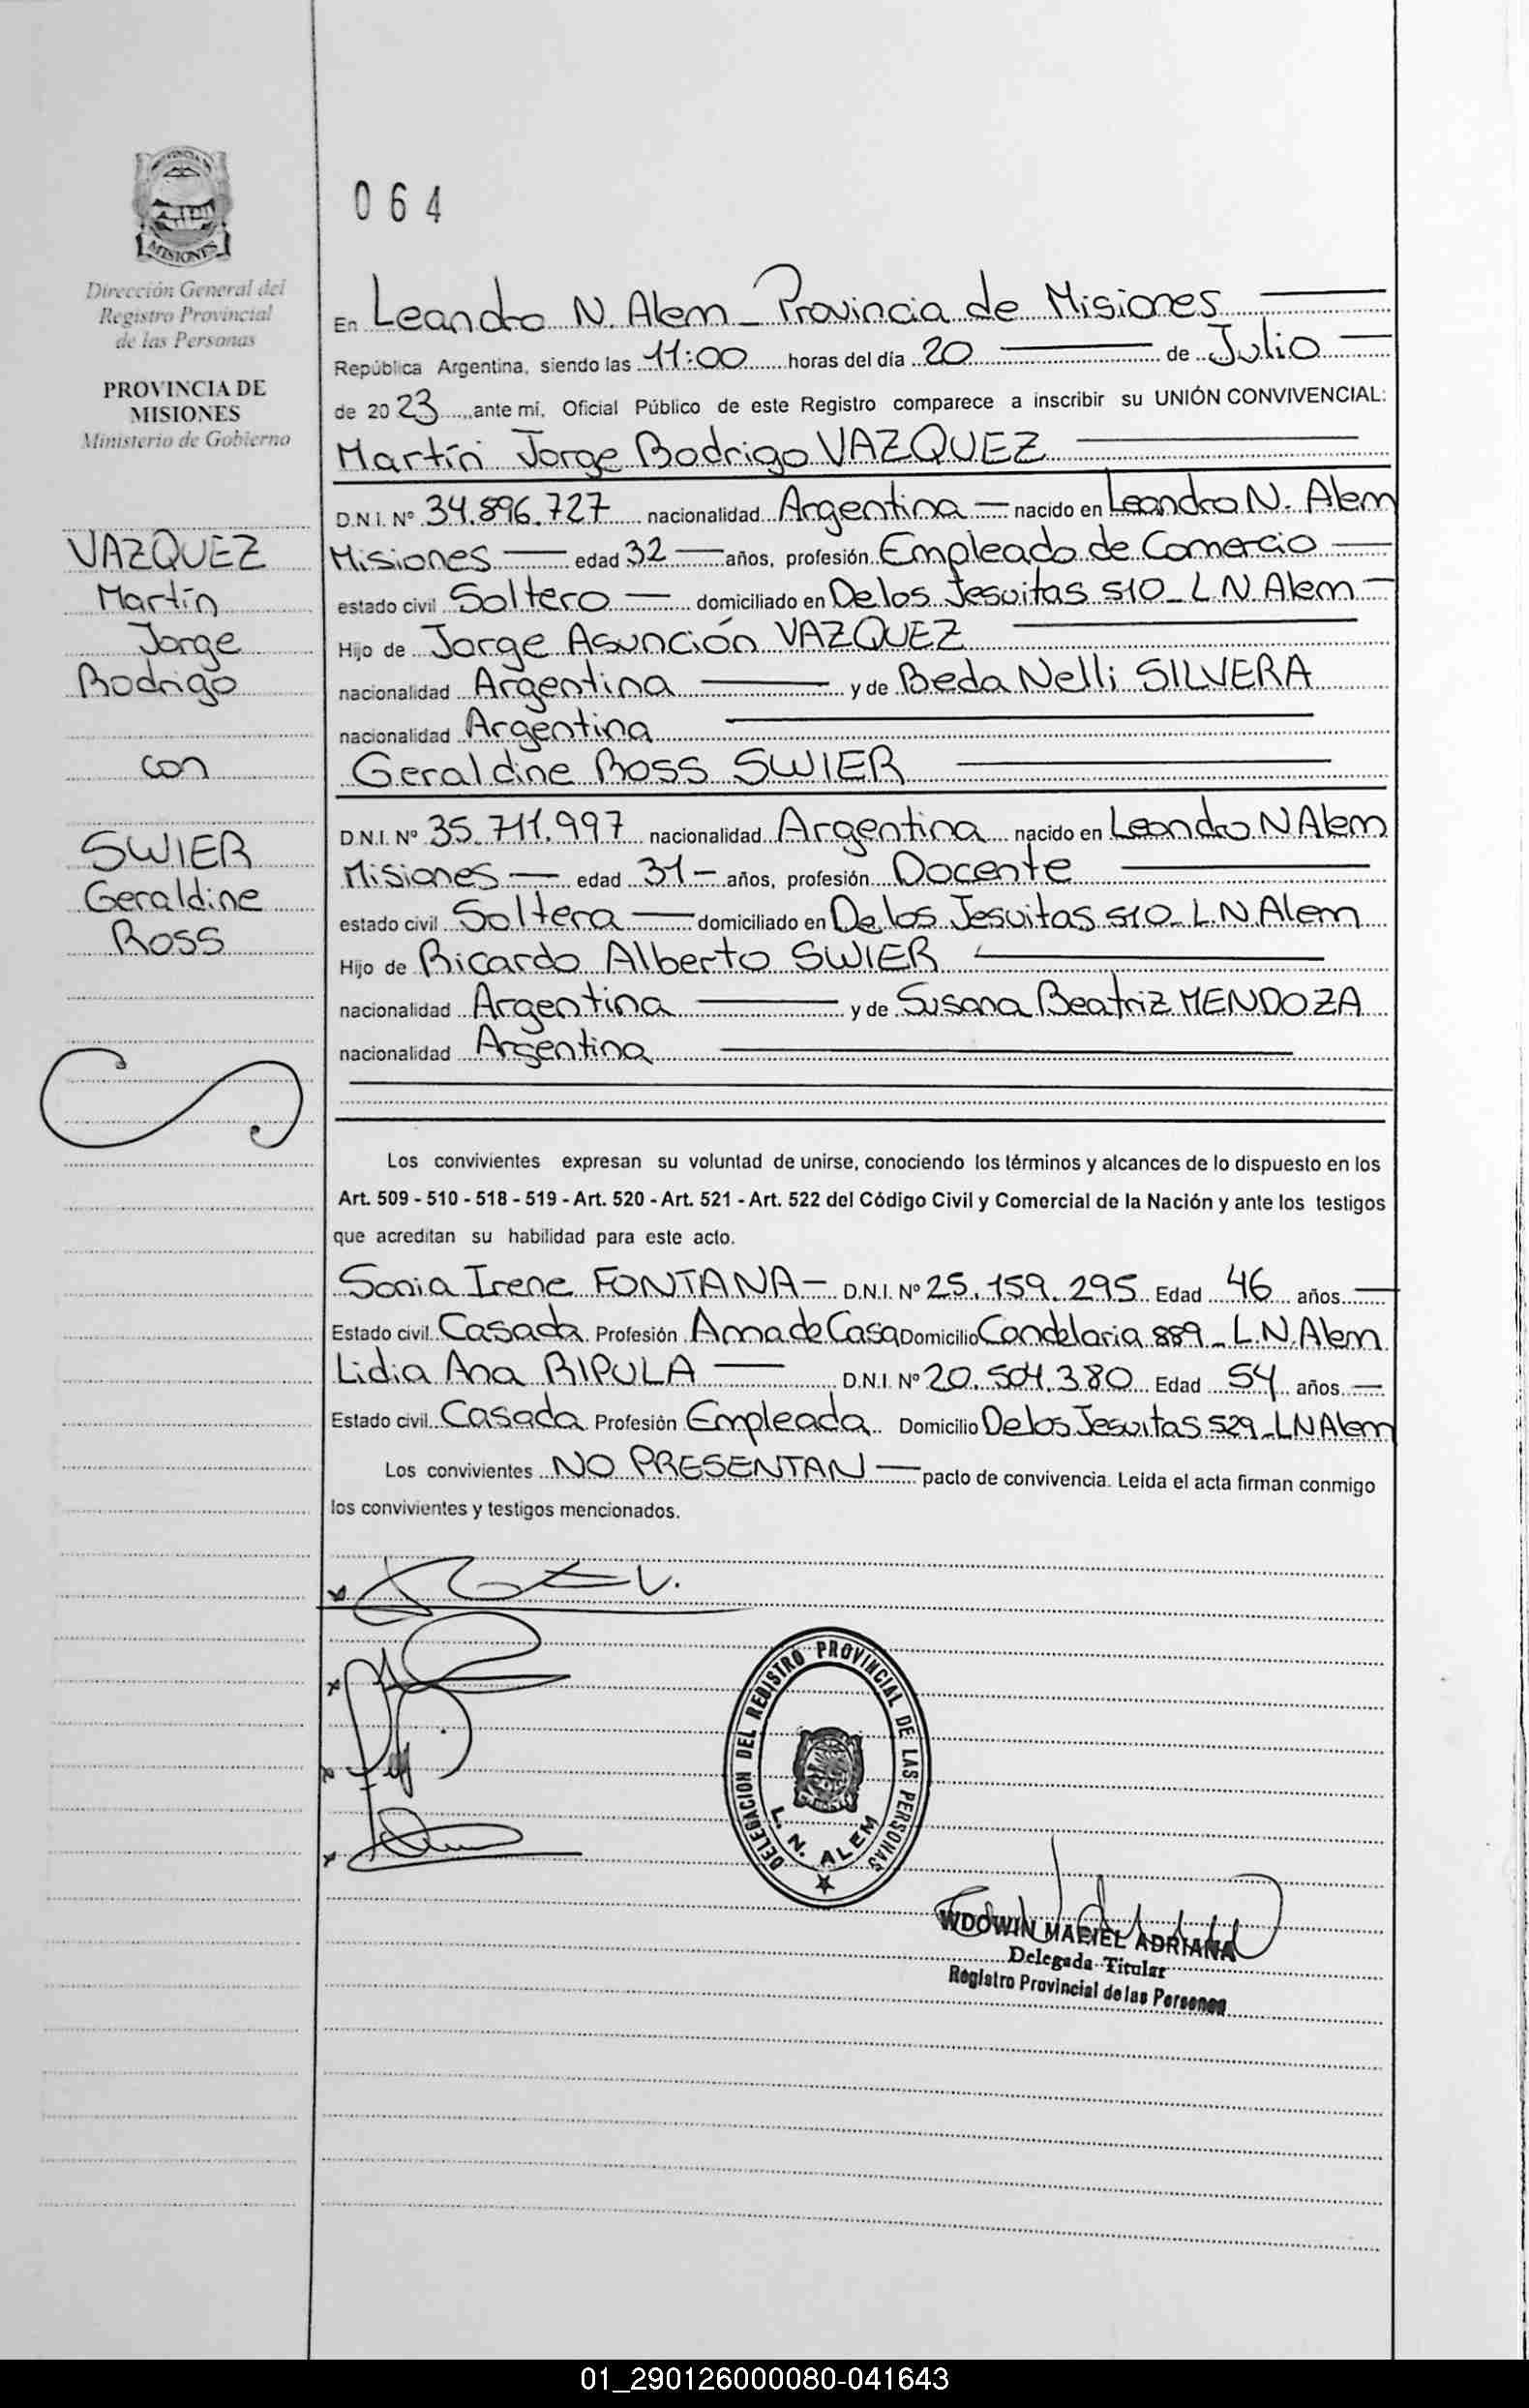 PROVINCIA DE
MISIONES
Dirección General del
Registro Provincial
de las Personas
PROVINCIA DE
MISIONES
Ministerio de Gobierno
VAZQUEZ
Martín
Jorge
Rodrigo
con
SWIER
Geraldine
Ross
064
En Leandro N. Alem _ Provincia de Misiones
República Argentina, siendo las 11:00 horas del día 20 de Julio
de 2023 ante mí, Oficial Público de este Registro comparece a inscribir su UNIÓN CONVIVENCIAL:
Martín Jorge Rodrigo VAZQUEZ
D.N.I. Nº 34.896.727 nacionalidad Argentina — nacido en Leandro N. Alem
Misiones — edad 32 — años, profesión Empleado de Comercio —
estado civil Soltero — domiciliado en De los Jesuitas 510 _ L N Alem —
Hijo de Jorge Asunción VAZQUEZ
nacionalidad Argentina — y de Beda Nelli SILVERA
nacionalidad Argentina
Geraldine Ross SWIER
D.N.I. Nº 35.711.997 nacionalidad Argentina nacido en Leandro N Alem
Misiones — edad 31 — años, profesión Docente
estado civil Soltera — domiciliado en De los Jesuitas 510 _ L.N. Alem
Hijo de Ricardo Alberto SWIER
nacionalidad Argentina — y de Susana Beatriz MENDOZA
nacionalidad Argentina
Los convivientes expresan su voluntad de unirse, conociendo los términos y alcances de lo dispuesto en los
Art. 509 - 510 - 518 - 519 - Art. 520 - Art. 521 - Art. 522 del Código Civil y Comercial de la Nación y ante los testigos
que acreditan su habilidad para este acto.
Sonia Irene FONTANA — D.N.I. Nº 25.159.295 Edad 46 años —
Estado civil Casada Profesión Ama de Casa Domicilio Candelaria 889 _ L.N. Alem
Lidia Ana RIPULA — D.N.I. Nº 20.504.380 Edad 54 años —
Estado civil Casada Profesión Empleada Domicilio De los Jesuitas 529 _ LN Alem
Los convivientes NO PRESENTAN — pacto de convivencia. Leída el acta firman conmigo
los convivientes y testigos mencionados.
DELEGACION DEL REGISTRO PROVINCIAL DE LAS PERSONAS
L. N. ALEM
WDOWIN MACIEL ADRIANA
Delegada Titular
Registro Provincial de las Personas
01_290126000080-041643